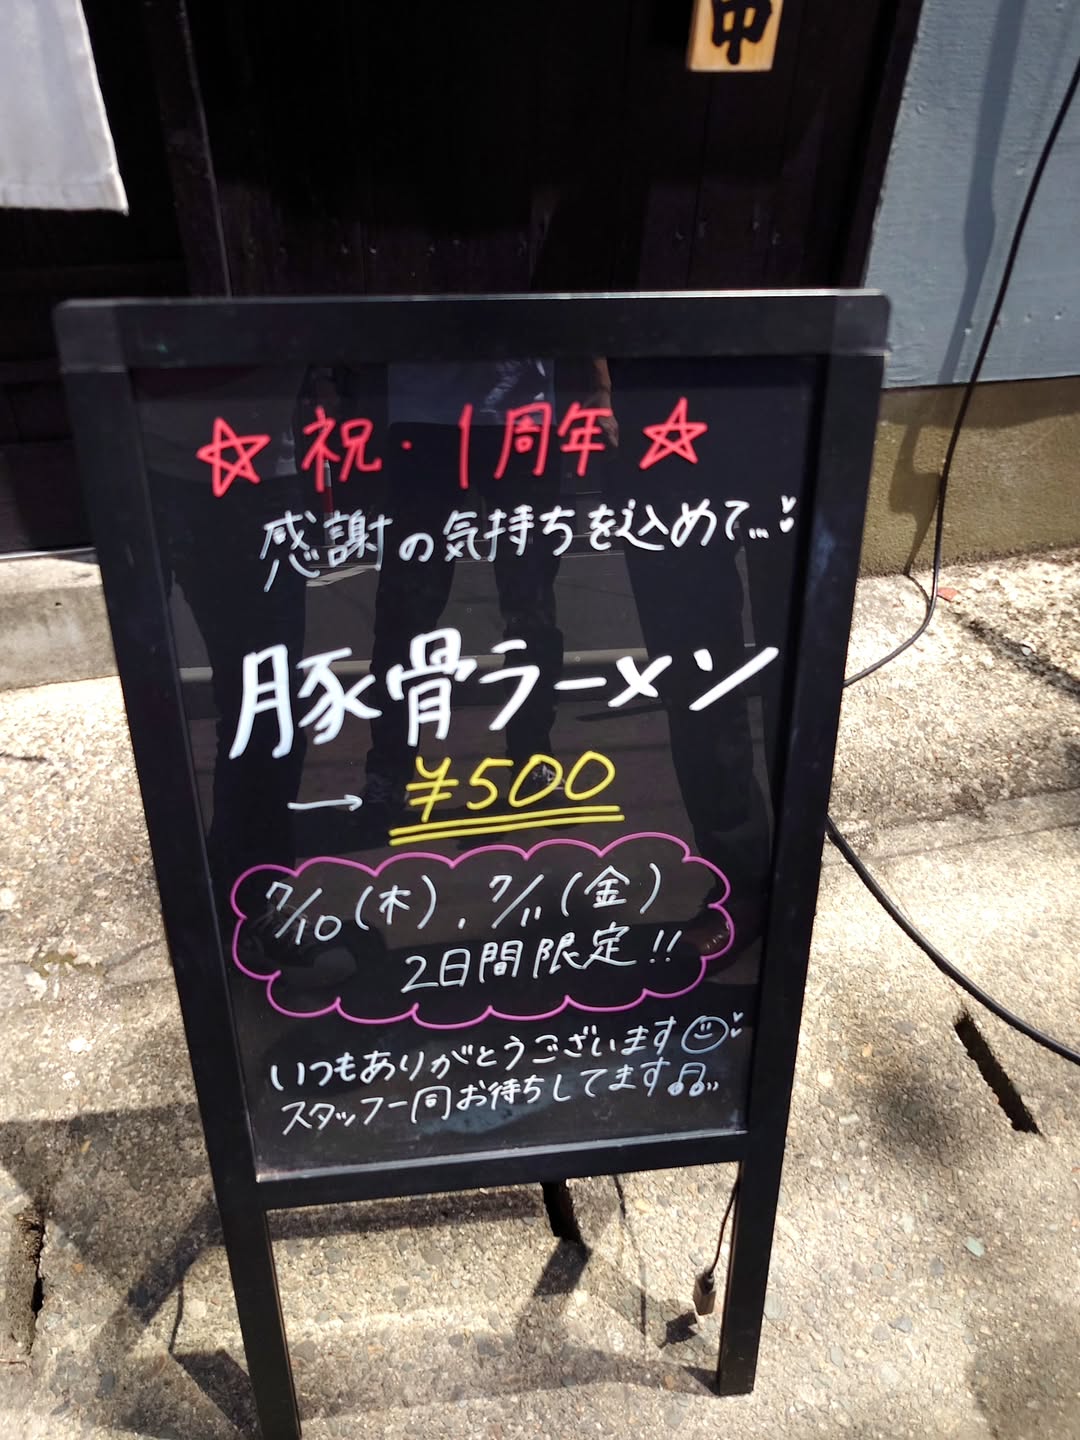 中
☆ 祝・1周年 ☆
感謝の気持ちを込めて…
豚骨ラーメン
→ ¥500
7/10(木)、7/11(金)
2日間限定!!
いつもありがとうございます
スタッフ一同お待ちしてます♫…